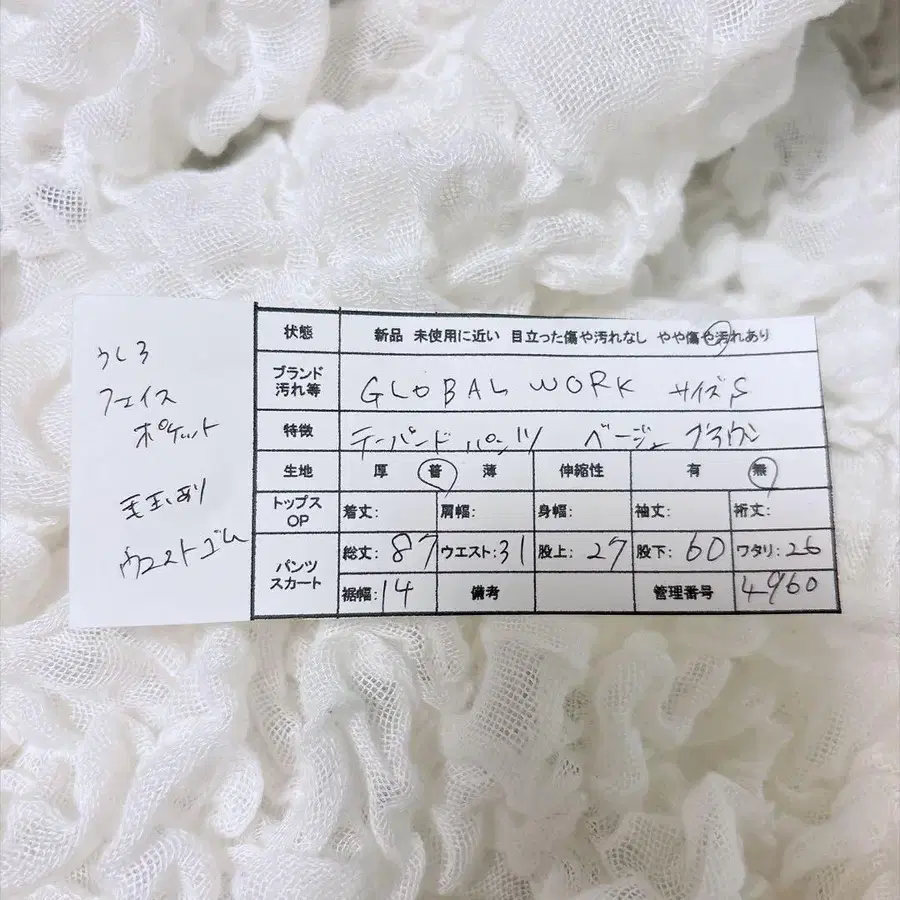 うしろ
フェイス
ポケット
毛玉あり
ウエストゴム
状態 新品 未使用に近い 目立った傷や汚れなし やや傷や汚れあり
ブランド
汚れ等 GLOBAL WORK サイズS
特徴 テーパードパンツ ベージュ ブラウン
生地 厚 普 薄 伸縮性 有 無
トップス
OP 着丈: 肩幅: 身幅: 袖丈: 裄丈:
パンツ
スカート 総丈:87 ウエスト:31 股上:27 股下:60 ワタリ:26
裾幅:14 備考 管理番号 4960